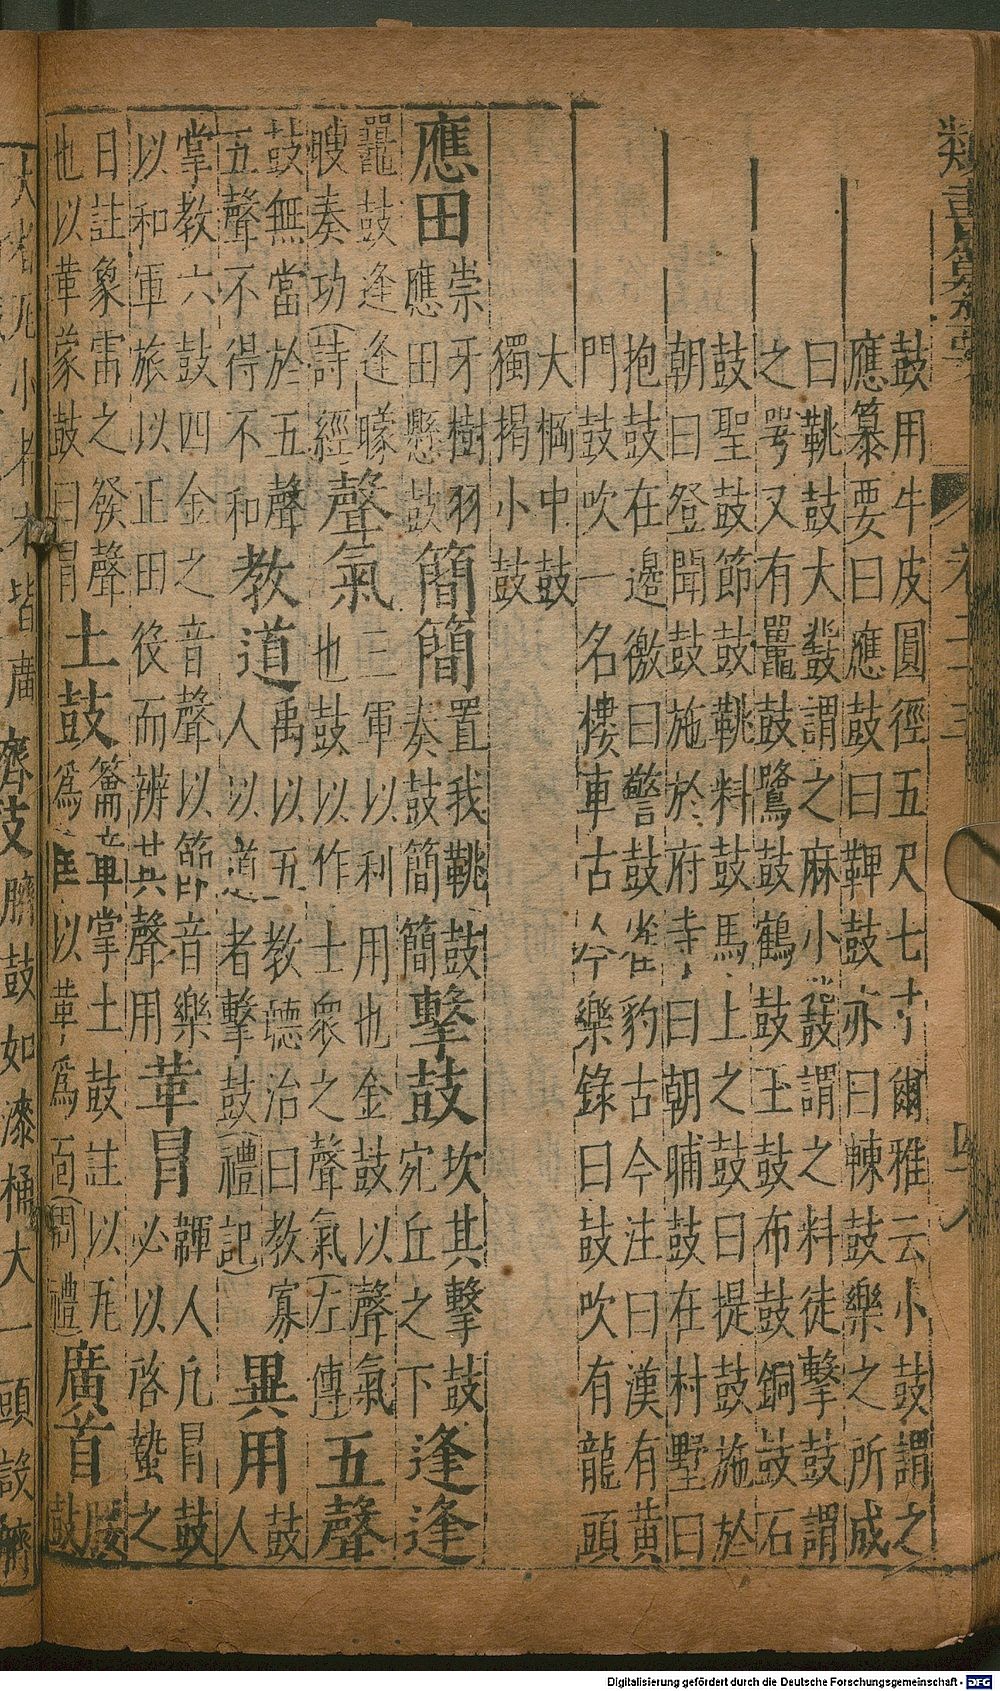 鼓用牛皮圓徑五尺七寸爾雅云小鼓謂之
應纂要曰應鼓曰鞞鼓亦曰朄鼓樂之所成
曰鞉鼓大鼖鼓謂之麻小鼓謂之料徒擊鼓謂
之咢又有鼉鼓鷺鼓鶴鼓玉鼓布鼓銅鼓石
鼓聖鼓節鼓鞉料鼓馬上之鼓曰提鼓施於
朝曰登聞鼓施於府寺曰朝晡鼓在村墅曰
抱鼓在邊徼曰警鼓崔豹古今注曰漢有黃
門鼓吹一名樓車古今樂錄曰鼓吹有龍頭
大棡中鼓
獨揭小鼓
應田 崇牙樹羽應田懸鼓 簡簡 置我鞉鼓奏鼓簡簡 擊鼓 坎其擊鼓宛丘之下 逢逢
鼉鼓逢逢矇瞍奏功(詩經) 聲氣 三軍以利用也金鼓以聲氣也鼓以作士衆之聲氣(左傳) 五聲
鼓無當於五聲五聲不得不和 教道 禹以五教聽治曰教寡人以道者擊鼓(禮記) 異用 鼓人
掌教六鼓四金之音聲以節音樂以和軍旅以正田役而辨其聲用 革冒 韗人凡冒鼓必以啓蟄之
日註象雷之發聲也以革蒙鼓曰冒 土鼓 籥章掌土鼓註以瓦爲匡以革爲面(周禮) 廣首 鼓
大者
皆廣
臍鼓如漆桶大一頭
類書
四八
Digitalisierung gefördert durch die Deutsche Forschungsgemeinschaft - DFG